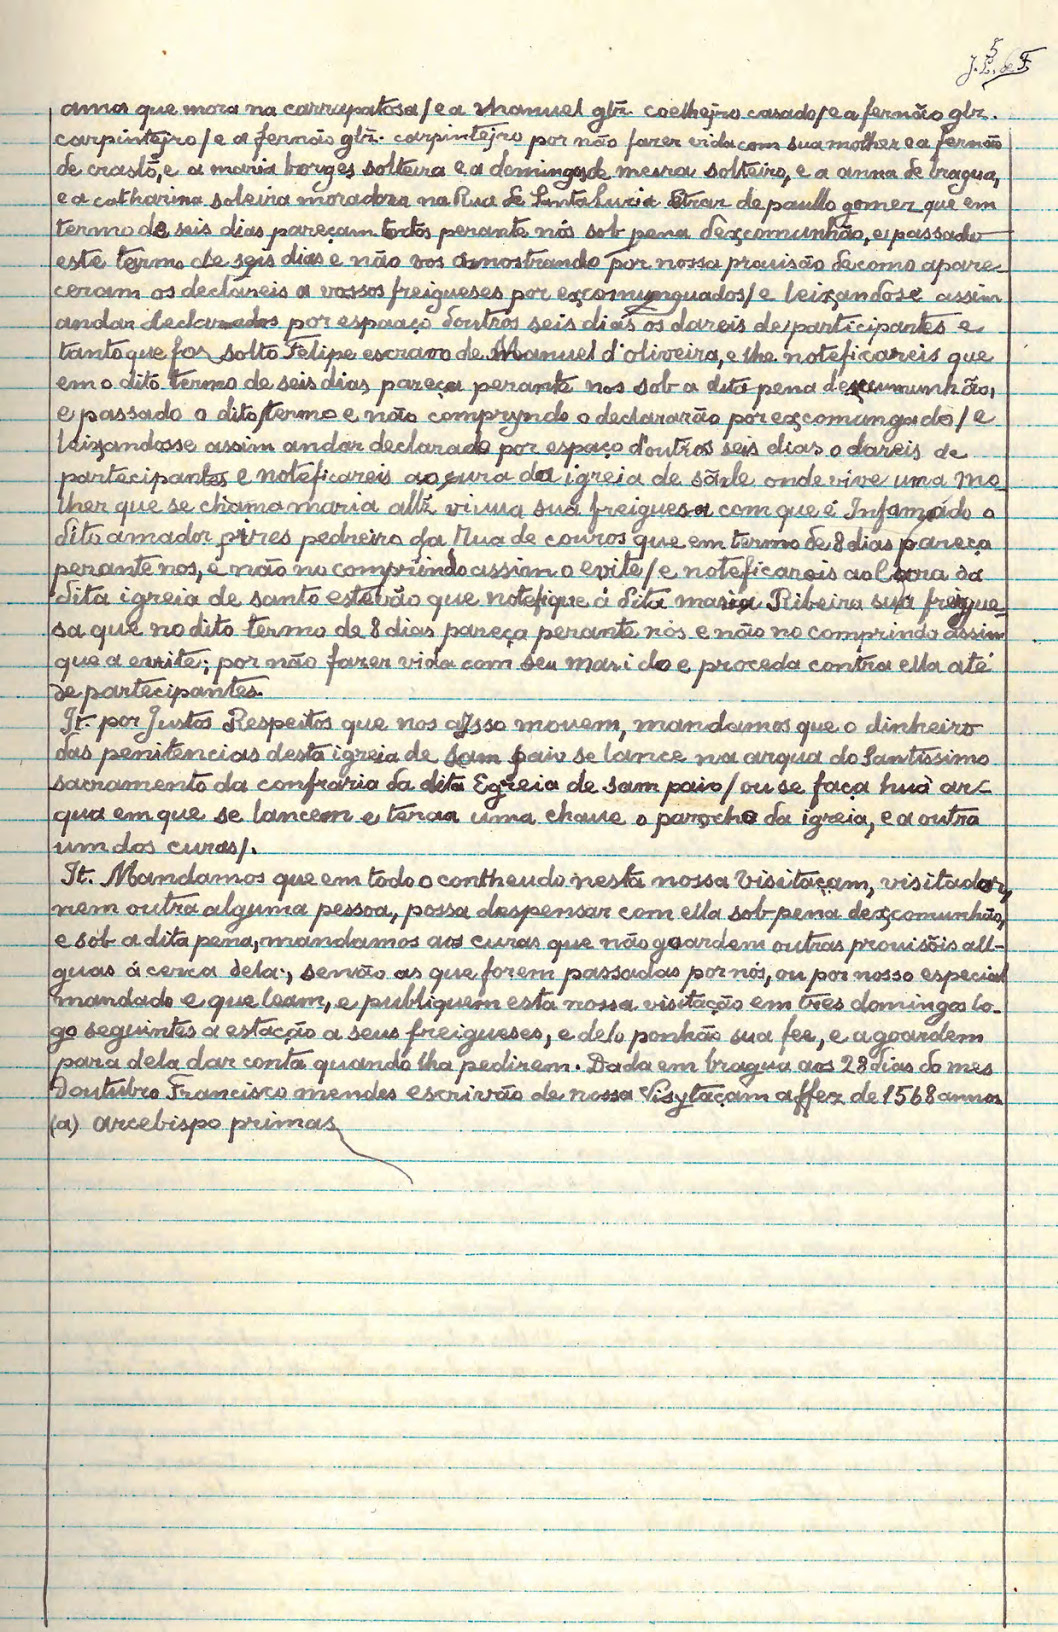 5
ama que mora na carrapatosa/ e a Manuel glz̃. coelhejro casado/ e a fernão glz.
carpintejro/ e a fernão glz̃. carpintejro por não fazer vida com sua molher e a fernão
de crasto, e a maria borges solteira e a domingos de meira solteiro, e a anna de bragua,
e a catharina solteira moradora na Rua de Santa Luzia detrar de paullo gomez que em
termo de seis dias pareçam todos perante nós sob pena dexcomunhão, e passado
este termo de seis dias e não vos amostrando por nossa provisão de como apare-
ceram os declareis a vossos freigueses por excomunguados/ e leixandose assim
andar declarados por espaaço doutros seis dias os dareis de participantes e
tanto que for solto Felipe escravo de Manuel d'oliveira, e lhe noteficareis que
em o dito termo de seis dias pareça perante nos sob a dita pena dexcumunhão,
e passado o dito termo e não compryndo o declararão por excomungado/ e
leixandosse assim andar declarado por espaço d'outros seis dias o dareis de
partecipantes e noteficareis ao cura da igreia de sãde onde vive uma mo-
lher que se chama maria allz̃ viuva sua freiguesa com que é Infamado o
dito amador pires pedreiro da Rua de couros que em termo de 8 dias pareça
perante nos, e não no comprindo assim o evite/ e noteficareis ao Cura da
dita igreia de santo estevão que notefique á dita maria Ribeira sua freigue-
sa que no dito termo de 8 dias pareça perante nós e não no comprindo assim
que a evite; por não fazer vida com seu marido e proceda contra ella até
de partecipantes.
It. por Justos Respeitos que nos a Isso movem, mandamos que o dinheiro
das penitencias desta igreia de Sam paio se lance na arqua do Santissimo
sacramento da confraria da dita Egreia de Sam paio/ ou se faça huã ar-
qua em que se lancem e terá uma chave o parocho da igreia, e a outra
um dos curas/.
It. Mandamos que em todo o contheudo nesta nossa Visitaçam, visitador,
nem outra alguma pessoa, possa despensar com ella sob pena dexcomunhão,
e sob a dita pena, mandamos aos curas que não goardem outras provisõis all-
guas á cerca dela, senão as que forem passadas por nós, ou por nosso especial
mandado e que leam, e publiquem esta nossa visitação em tres domingos lo-
go seguintes a estação a seus freigueses, e delo ponhão sua fee, e a goardem
para dela dar conta quando lha pedirem. Dada em bragua aos 28 dias do mes
Doutubro Francisco mendes escrivão de nossa Visytaçam a ffez de 1568 annos
(a) arcebispo primas